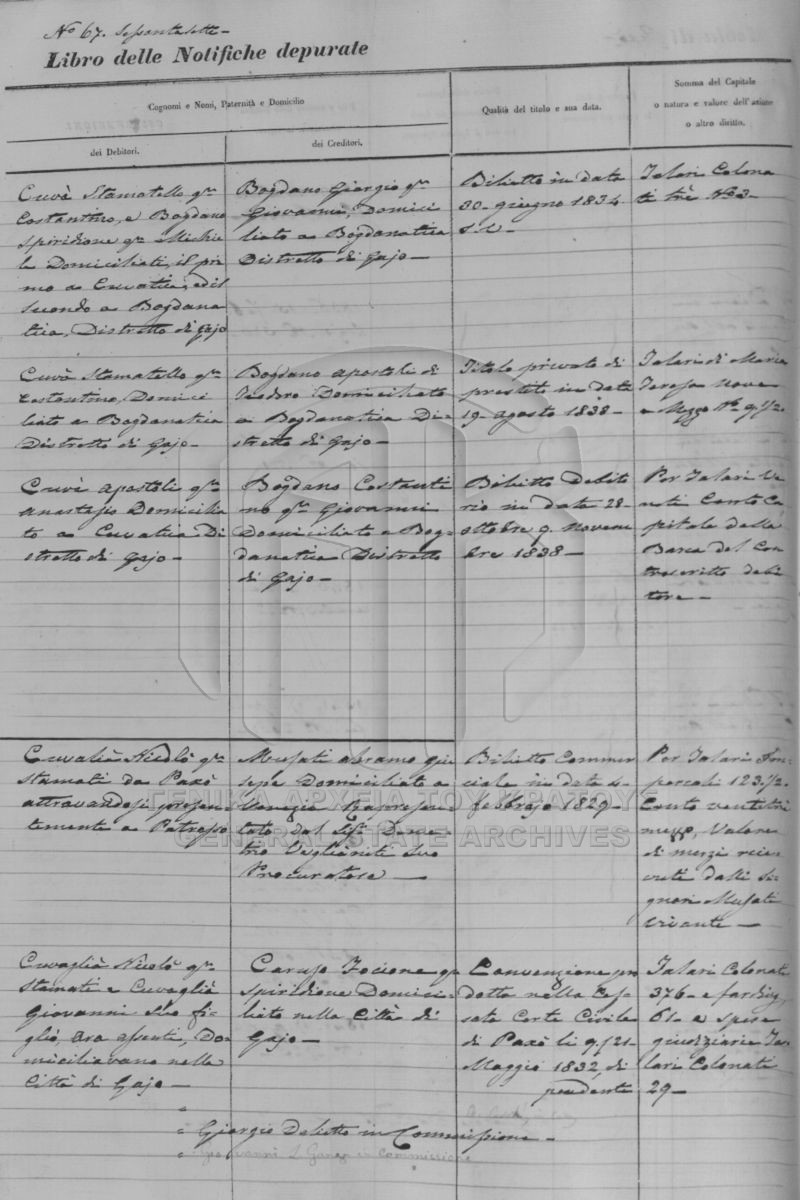 No 67. Sessantasette -
Libro delle Notifiche depurate
Cognomi e Nomi, Paternità e Domicilio
dei Debitori.
dei Creditori.
Qualità del titolo e sua data.
Somma del Capitale
o natura e valore dell'azione
o altro diritto.
Cuvà Stamatello qm
Costantino, e Bogdano
Spiridione qm Michie
le Domiciliati, il pri
mo a Cuvatica, ed il
secondo a Bogdana
tica, Distretto di Gajo
Bogdano Giorgio qm
Giovanni, Domici
liato a Bogdanatica
Distretto di Gajo -
Bilietto in data
30 giugno 1834
s.v. -
Talari Colona
ti trè No 3 -
Cuvà Stamatello qm
Costantino, Domici
liato a Bogdanatica
Distretto di Gajo -
Bogdano Apostoli di
Teodoro Domiciliato
a Bogdanatica Di=
stretto di Gajo -
Titolo privato di
prestito in data
19 agosto 1838 -
Talari di Maria
Teresa Nove
e Mezzo No 9 1/2 -
Cuvà Apostoli qm
Anastasio Domicilia
to a Cuvatica Di
stretto di Gajo -
Bogdano Costanti
no qm Giovanni
Domiciliato a Bog=
danatica Distretto
di Gajo -
Bilietto Debito
rio in data 28
ottobre 9. Novem
bre 1838 -
Per Talari Ve
nti Conto Ca
pitale della
Barca del Con
troscritto debi
tore -
Cuvalià Nicolò qm
Stamati da Paxò
attrovandosi presen
temente a Patrasso
Musati Abramo giu
sepe Domiciliato a
Venezia Rappresen
tato dal Sigr Deme=
trio Veglianiti suo
Procuratore -
Bilietto Commer
ciale in data 4
febbrajo 1829 -
Per Talari Im
periali 123 1/2
Cento ventitrè
mezzo, Valore
di merzi rice
vuti dalli Si
gnori Musati
Vivante -
Cuvaglià Nicolò qm
Stamati e Cuvaglià
Giovanni suo fi=
glio, ora assenti, Do=
miciliavano nella
Città di Gajo -
Caruso Focione qm
Spiridione Domici
liato nella Città di
Gajo -
Convenzione pro
dotta nella Ces
sata Corte Civile
di Paxò li 9/21
Maggio 1832, di
pendente
Talari Colonati
376 - e fardins
61 - e spese
giudiziarie Ta
lari Colonati
29 -
" Giorgio in Commissione -
in Commissione
ΓΕΝΙΚΑ ΑΡΧΕΙΑ ΤΟΥ ΚΡΑΤΟΥΣ
CENTRAL STATE ARCHIVES